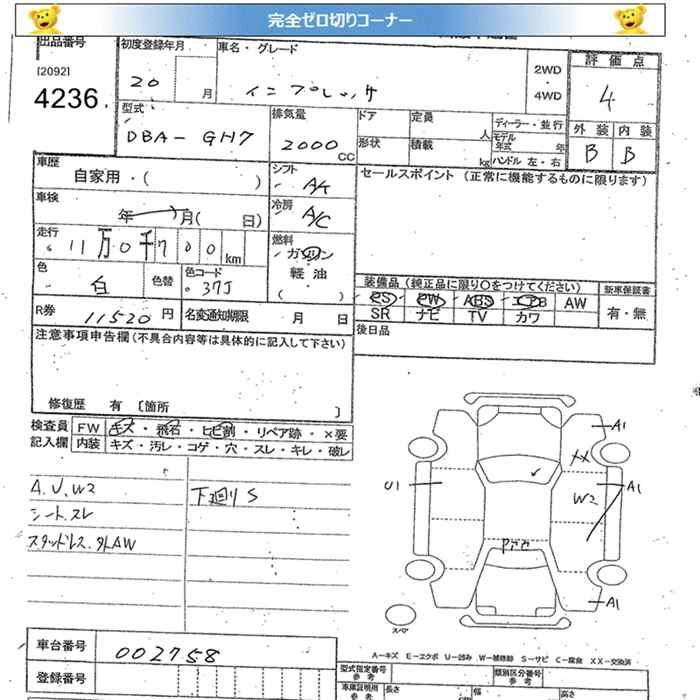 完全ゼロ切りコーナー
出品番号
[2092]
4236
初度登録年月
20 月
車名・グレード
インプレッサ
2WD
・
4WD
評価点
4
外装 内装
B B
型式
DBA-GH7
排気量
2000 CC
ドア
定員
人
形状
積載
kg
ディーラー・並行
モデル年式 年
ハンドル 左・右
車歴
自家用・( )
シフト
AA
冷房
A/C
セールスポイント (正常に機能するものに限ります)
車検
年 月( 日)
走行
11万0千700km
燃料
ガソリン
軽油
( )
色
白
色替
色コード
37J
装備品 (純正品に限り○をつけてください)
PS PW ABS エアB AW
SR ナビ TV カワ
新車保証書
有・無
R券
11520円
名変通知期限 月 日
後日品
注意事項申告欄 (不具合内容等は具体的に記入して下さい)
修復歴 有 〔箇所 〕
検査員記入欄
FW キズ・飛石・ヒビ割・リペア跡・×要
内装 キズ・汚レ・コゲ・穴・スレ・キレ・破レ
A.U.W2
シートスレ
スタッドレス.外AW
下廻りS
A1
XX
U1
W2
A1
A1
スペア
A-キズ E-エクボ U-凹み W-補修跡 S-サビ C-腐食 XX-交換済
車台番号
002758
登録番号
型式指定番号
参考
類別区分番号
参考
車庫証明用
参考
長さ
幅
高さ